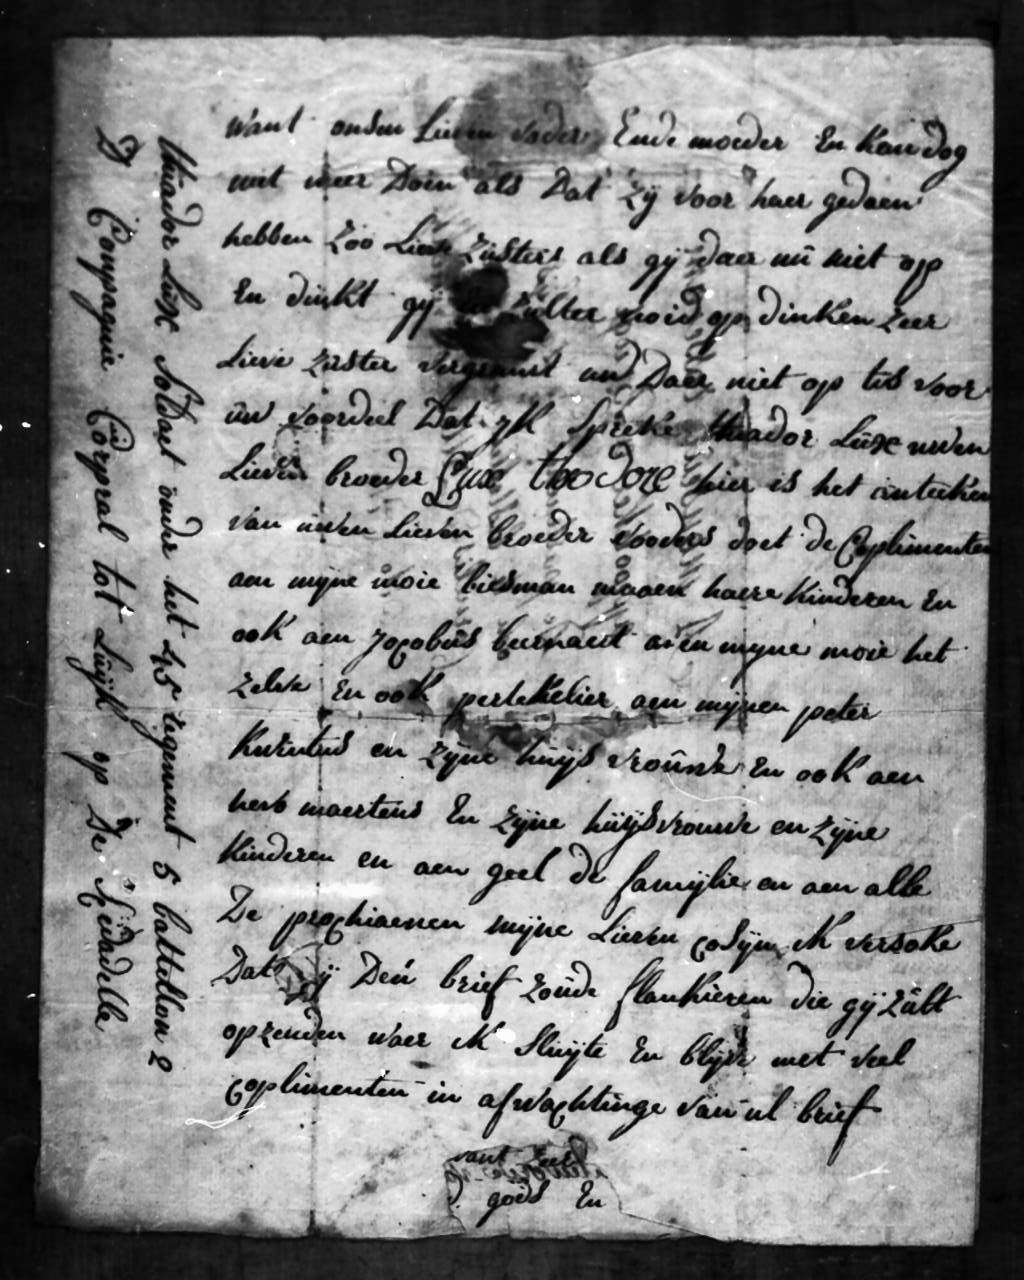 want onsen Lieven vader Ende moeder En kan dog
niet meer Doen als Dat zÿ voor haer gedaen
hebben zoo Lieve zusters als gÿ daer nu niet op
En dinkt gÿ zulter noid op dinken zeer
Lieve zuster vergramt und Daer niet op tis voor
uw voordeel Dat yk spreke thiador Luxe uwen
Lieven broeder Luxe theodore hier is het anteeken
van uwen Lieven broeder voorders doet de Coplimenten
aen mÿne moie biesman maaen haere kinderen En
ook aen jocobus burnaert aen mÿne moie het
zelve En ook pertekelier aen mÿnen peter
kurintus en zÿne huÿs vrouwe En ook aen
herb maertens En zÿne huÿsvrouwe en zÿne
kinderen en aen geel de famÿlie en aen alle
De prochiaenen mÿne Lieven cosÿn ik versoke
Dat gÿ Den brief zoude flankieren die gÿ zult
opzenden waer ik sluÿte En blÿve met veel
coplimenten in afwachtinge van ul brief
vant
goids En
thiador Luxe soldaet onder het 45 regement 5 battellon 2
D Conpagnie Corpral tot Luÿk op De Sidadelle